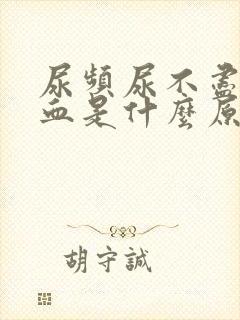 尿頻尿不盡
血是什麼原
胡守誠